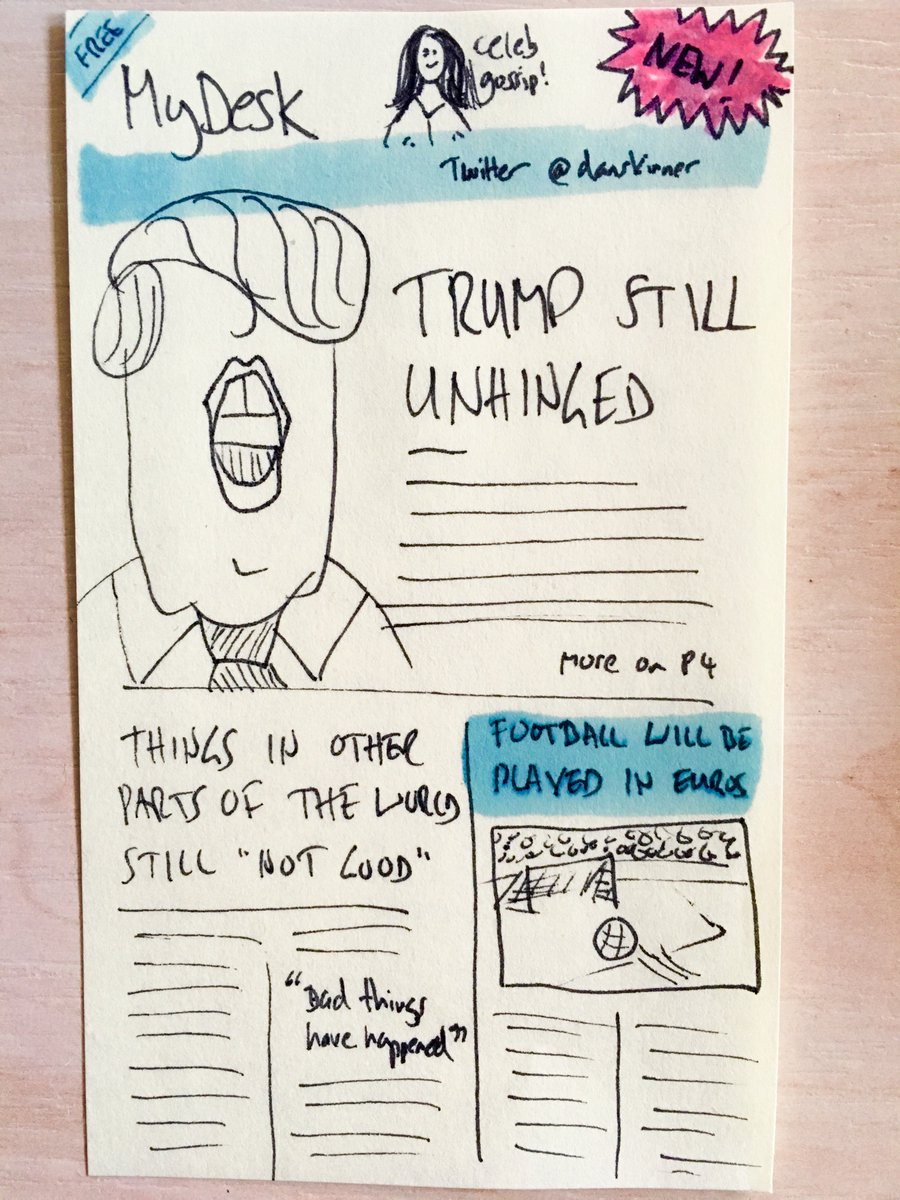 FREE
MyDesk
celeb
gossip!
NEW!
Twitter @danskinner
TRUMP STILL
UNHINGED
More on P4
THINGS IN OTHER
PARTS OF THE WORLD
STILL "NOT GOOD"
"Bad things
have happened"
FOOTBALL WILL BE
PLAYED IN EUROS